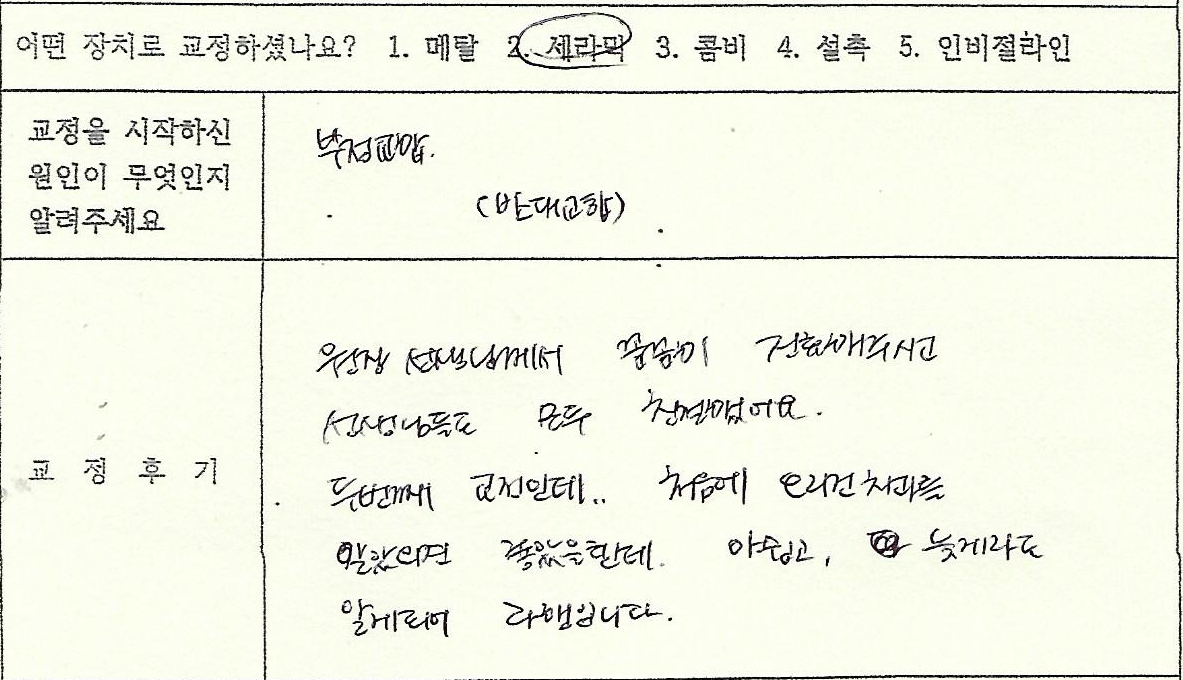 어떤 장치로 교정하셨나요? 1. 메탈 2. 세라믹 3. 콤비 4. 설측 5. 인비절라인
교정을 시작하신
원인이 무엇인지
알려주세요
부정교합.
(반대교합)
교 정 후 기
원장 선생님께서 꼼꼼이 진행해주시고
선생님들도 모두 친절했어요.
두번째 교정인데.. 처음에 오리건치과를
알았으면 좋았을한데. 아쉽고, 늦게라도
알게되어 다행입니다.